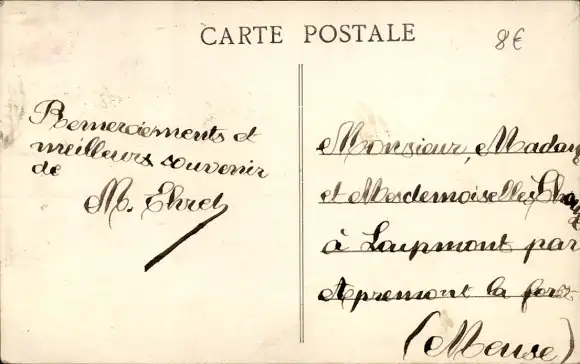 CARTE POSTALE
8€
Remerciements et
meilleurs souvenir
de
M. Ehret
Monsieur, Madame
et Mesdemoiselles
à Loupmont par
Apremont la forêt
(Meuse)